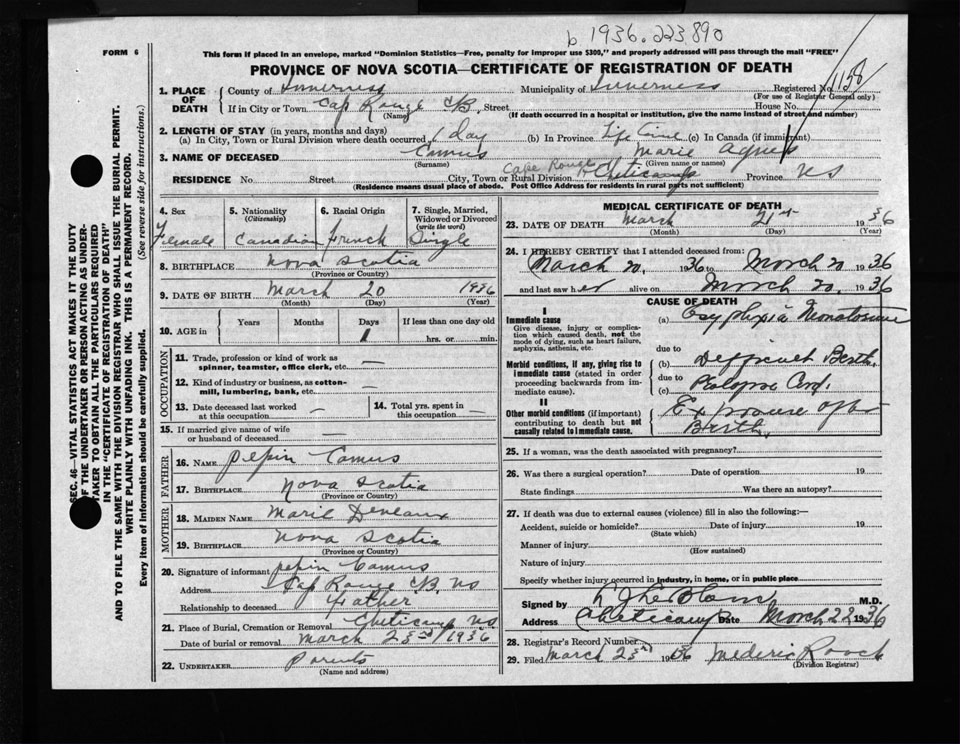 b 1936.223890
FORM 6
This form if placed in an envelope, marked "Dominion Statistics—Free, penalty for improper use $300," and properly addressed will pass through the mail "FREE"
PROVINCE OF NOVA SCOTIA—CERTIFICATE OF REGISTRATION OF DEATH
1158
1. PLACE OF DEATH
County of Inverness Municipality of Inverness Registered No.
(For use of Registrar General only)
If in City or Town Cap Rouge C/B. Street House No.
(Name) (If death occurred in a hospital or institution, give the name instead of street and number)
2. LENGTH OF STAY (in years, months and days)
(a) In City, Town or Rural Division where death occurred 1 day (b) In Province Life time (c) In Canada (if immigrant)
3. NAME OF DECEASED Camus Marie Agnes
(Surname) (Given name or names)
RESIDENCE No. Street City, Town or Rural Division Cape Rouge Cheticamp Province NS
(Residence means usual place of abode. Post Office Address for residents in rural parts not sufficient)
4. Sex
5. Nationality (Citizenship)
6. Racial Origin
7. Single, Married, Widowed or Divorced (write the word)
Female Canadian French Single
8. BIRTHPLACE Nova Scotia
(Province or Country)
9. DATE OF BIRTH March 20 1936
(Month) (Day) (Year)
10. AGE in Years Months Days If less than one day old
1 hrs. or min.
OCCUPATION
11. Trade, profession or kind of work as spinner, teamster, office clerk, etc. —
12. Kind of industry or business, as cotton-mill, lumbering, bank, etc. —
13. Date deceased last worked at this occupation —
14. Total yrs. spent in this occupation —
15. If married give name of wife or husband of deceased —
FATHER
16. NAME Pepin Camus
17. BIRTHPLACE Nova Scotia
(Province or Country)
MOTHER
18. MAIDEN NAME Marie Deveaux
19. BIRTHPLACE Nova Scotia
(Province or Country)
20. Signature of informant Pepin Camus
Address Cap Rouge C/B. NS
Relationship to deceased Father
21. Place of Burial, Cremation or Removal Cheticamp NS
Date of burial or removal March 23rd 1936
22. UNDERTAKER Parents
(Name and address)
MEDICAL CERTIFICATE OF DEATH
23. DATE OF DEATH March 21st 1936
(Month) (Day) (Year)
24. I HEREBY CERTIFY that I attended deceased from:
March 20, 1936 to March 20 1936
and last saw her alive on March 20. 1936
CAUSE OF DEATH
I
Immediate cause
Give disease, injury or complication which caused death, not the mode of dying, such as heart failure, asphyxia, asthenia, etc.
(a)
due to
Morbid conditions, if any, giving rise to immediate cause (stated in order proceeding backwards from immediate cause).
(b) Difficult Birth.
due to
(c) Cord.
II
Other morbid conditions (if important) contributing to death but not causally related to immediate cause.
Exposure after Birth.
25. If a woman, was the death associated with pregnancy?
26. Was there a surgical operation? Date of operation 19
State findings Was there an autopsy?
27. If death was due to external causes (violence) fill in also the following:—
Accident, suicide or homicide? Date of injury 19
(State which)
Manner of injury
(How sustained)
Nature of injury
Specify whether injury occurred in industry, in home, or in public place
Signed by L J LeBlanc M.D.
Address Cheticamp Date March 22 1936
28. Registrar's Record Number
29. Filed March 23rd 1936 Mederic Roach
(Division Registrar)
SEC. 46—VITAL STATISTICS ACT MAKES IT THE DUTY
OF THE UNDERTAKER OR PERSON ACTING AS UNDER-
TAKER TO OBTAIN ALL THE PARTICULARS REQUIRED
IN THE "CERTIFICATE OF REGISTRATION OF DEATH"
AND TO FILE THE SAME WITH THE DIVISION REGISTRAR WHO SHALL ISSUE THE BURIAL PERMIT.
WRITE PLAINLY WITH UNFADING INK. THIS IS A PERMANENT RECORD.
Every item of information should be carefully supplied. (See reverse side for instructions.)